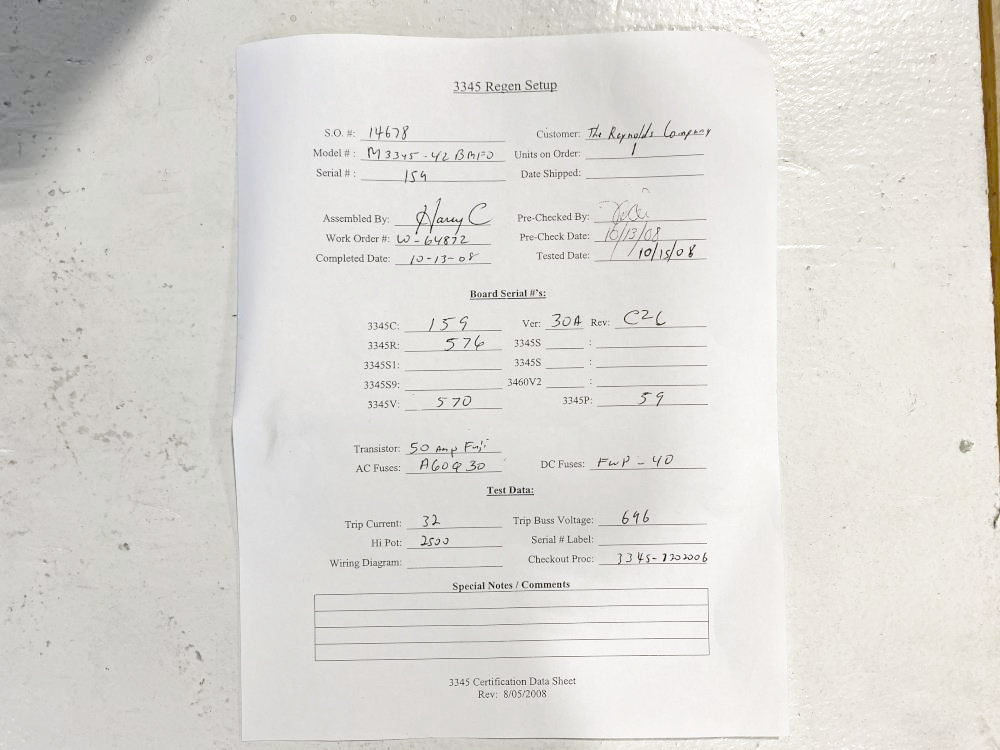 3345 Regen Setup
S.O. #: 14678 Customer: The Reynolds Company
Model # : M3345-42BMFO Units on Order: 1
Serial # : 159 Date Shipped:
Assembled By: Harry C Pre-Checked By:
Work Order #: W-64872 Pre-Check Date: 10/13/08
Completed Date: 10-13-08 Tested Date: 10/15/08
Board Serial #'s:
3345C: 159 Ver: 30A Rev: C2C
3345R: 576 3345S :
3345S1: 3345S :
3345S9: 3460V2 :
3345V: 570 3345P: 59
Transistor: 50 Amp Fuji
AC Fuses: A60Q30 DC Fuses: FWP-40
Test Data:
Trip Current: 32 Trip Buss Voltage: 696
Hi Pot: 2500 Serial # Label:
Wiring Diagram: Checkout Proc:
Special Notes / Comments
3345 Certification Data Sheet
Rev: 8/05/2008